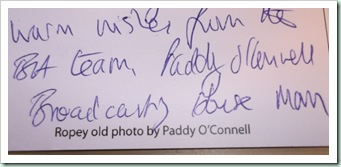 warm wishes from the
BH team, Paddy O'Connell
Broadcasting House
Ropey old photo by Paddy O'Connell